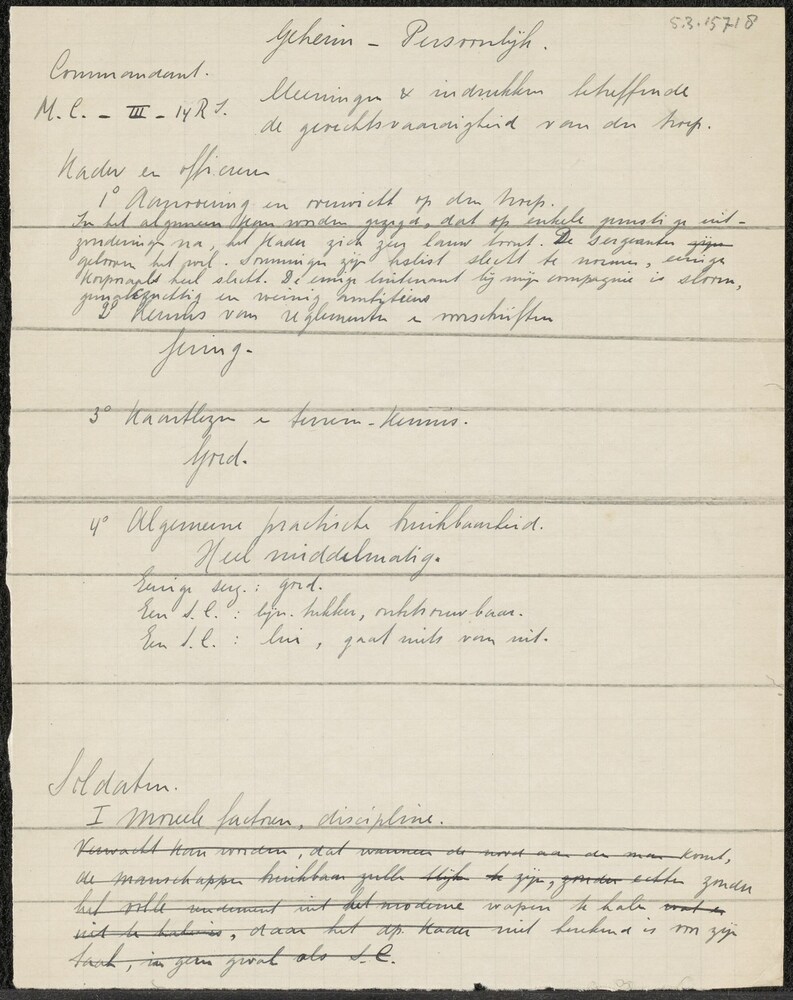 5.3.1571 8
Geheim – Persoonlijk.
Commandant.
M.C. – III – 14 R I.
Meeningen & indrukken betreffende
de gevechtsvaardigheid van den troep.
Kader en officieren
1° Aanvoering en overwicht op den troep.
In het algemeen kan worden gezegd, dat op enkele gunstige uit-
zonderingen na, het kader zich zeer lauw toont. De sergeanten zijn
geloven het wel. Sommigen zijn beslist slecht te noemen, eenige
korporaals heel slecht. De eenige luitenant bij mijn compagnie is sloom,
en weinig ambitieus
2° Kennis van reglementen en voorschriften
Gering.
3° Kaartlezen en terrein-kennis.
Goed.
4° Algemeene practische bruikbaarheid.
Heel middelmatig.
Eenige serg.: goed.
Een S.C.: lijn-trekker, onbetrouwbaar.
Een S.C.: lui, gaat niets van uit.
Soldaten.
I Moreele factoren, discipline.
Verwacht kan worden, dat wanneer de nood aan den man komt,
de manschappen bruikbaar zullen blijken te zijn, zonder echter zonder
het volle rendement uit het moderne wapen te halen wat er
uit te halen is, daar het dp. kader niet berekend is voor zijn
taak, in geen geval als S.C.